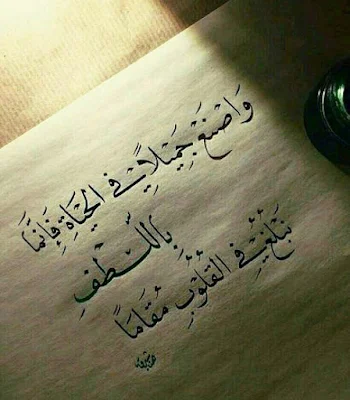 وَاصْنَعْ جَمِيْلاً فِي الْحَيَاةِ فَإِنَّمَا
بِاللُّطْفِ
نَبْلُغُ فِي القُلُوْبِ مُقَامَا